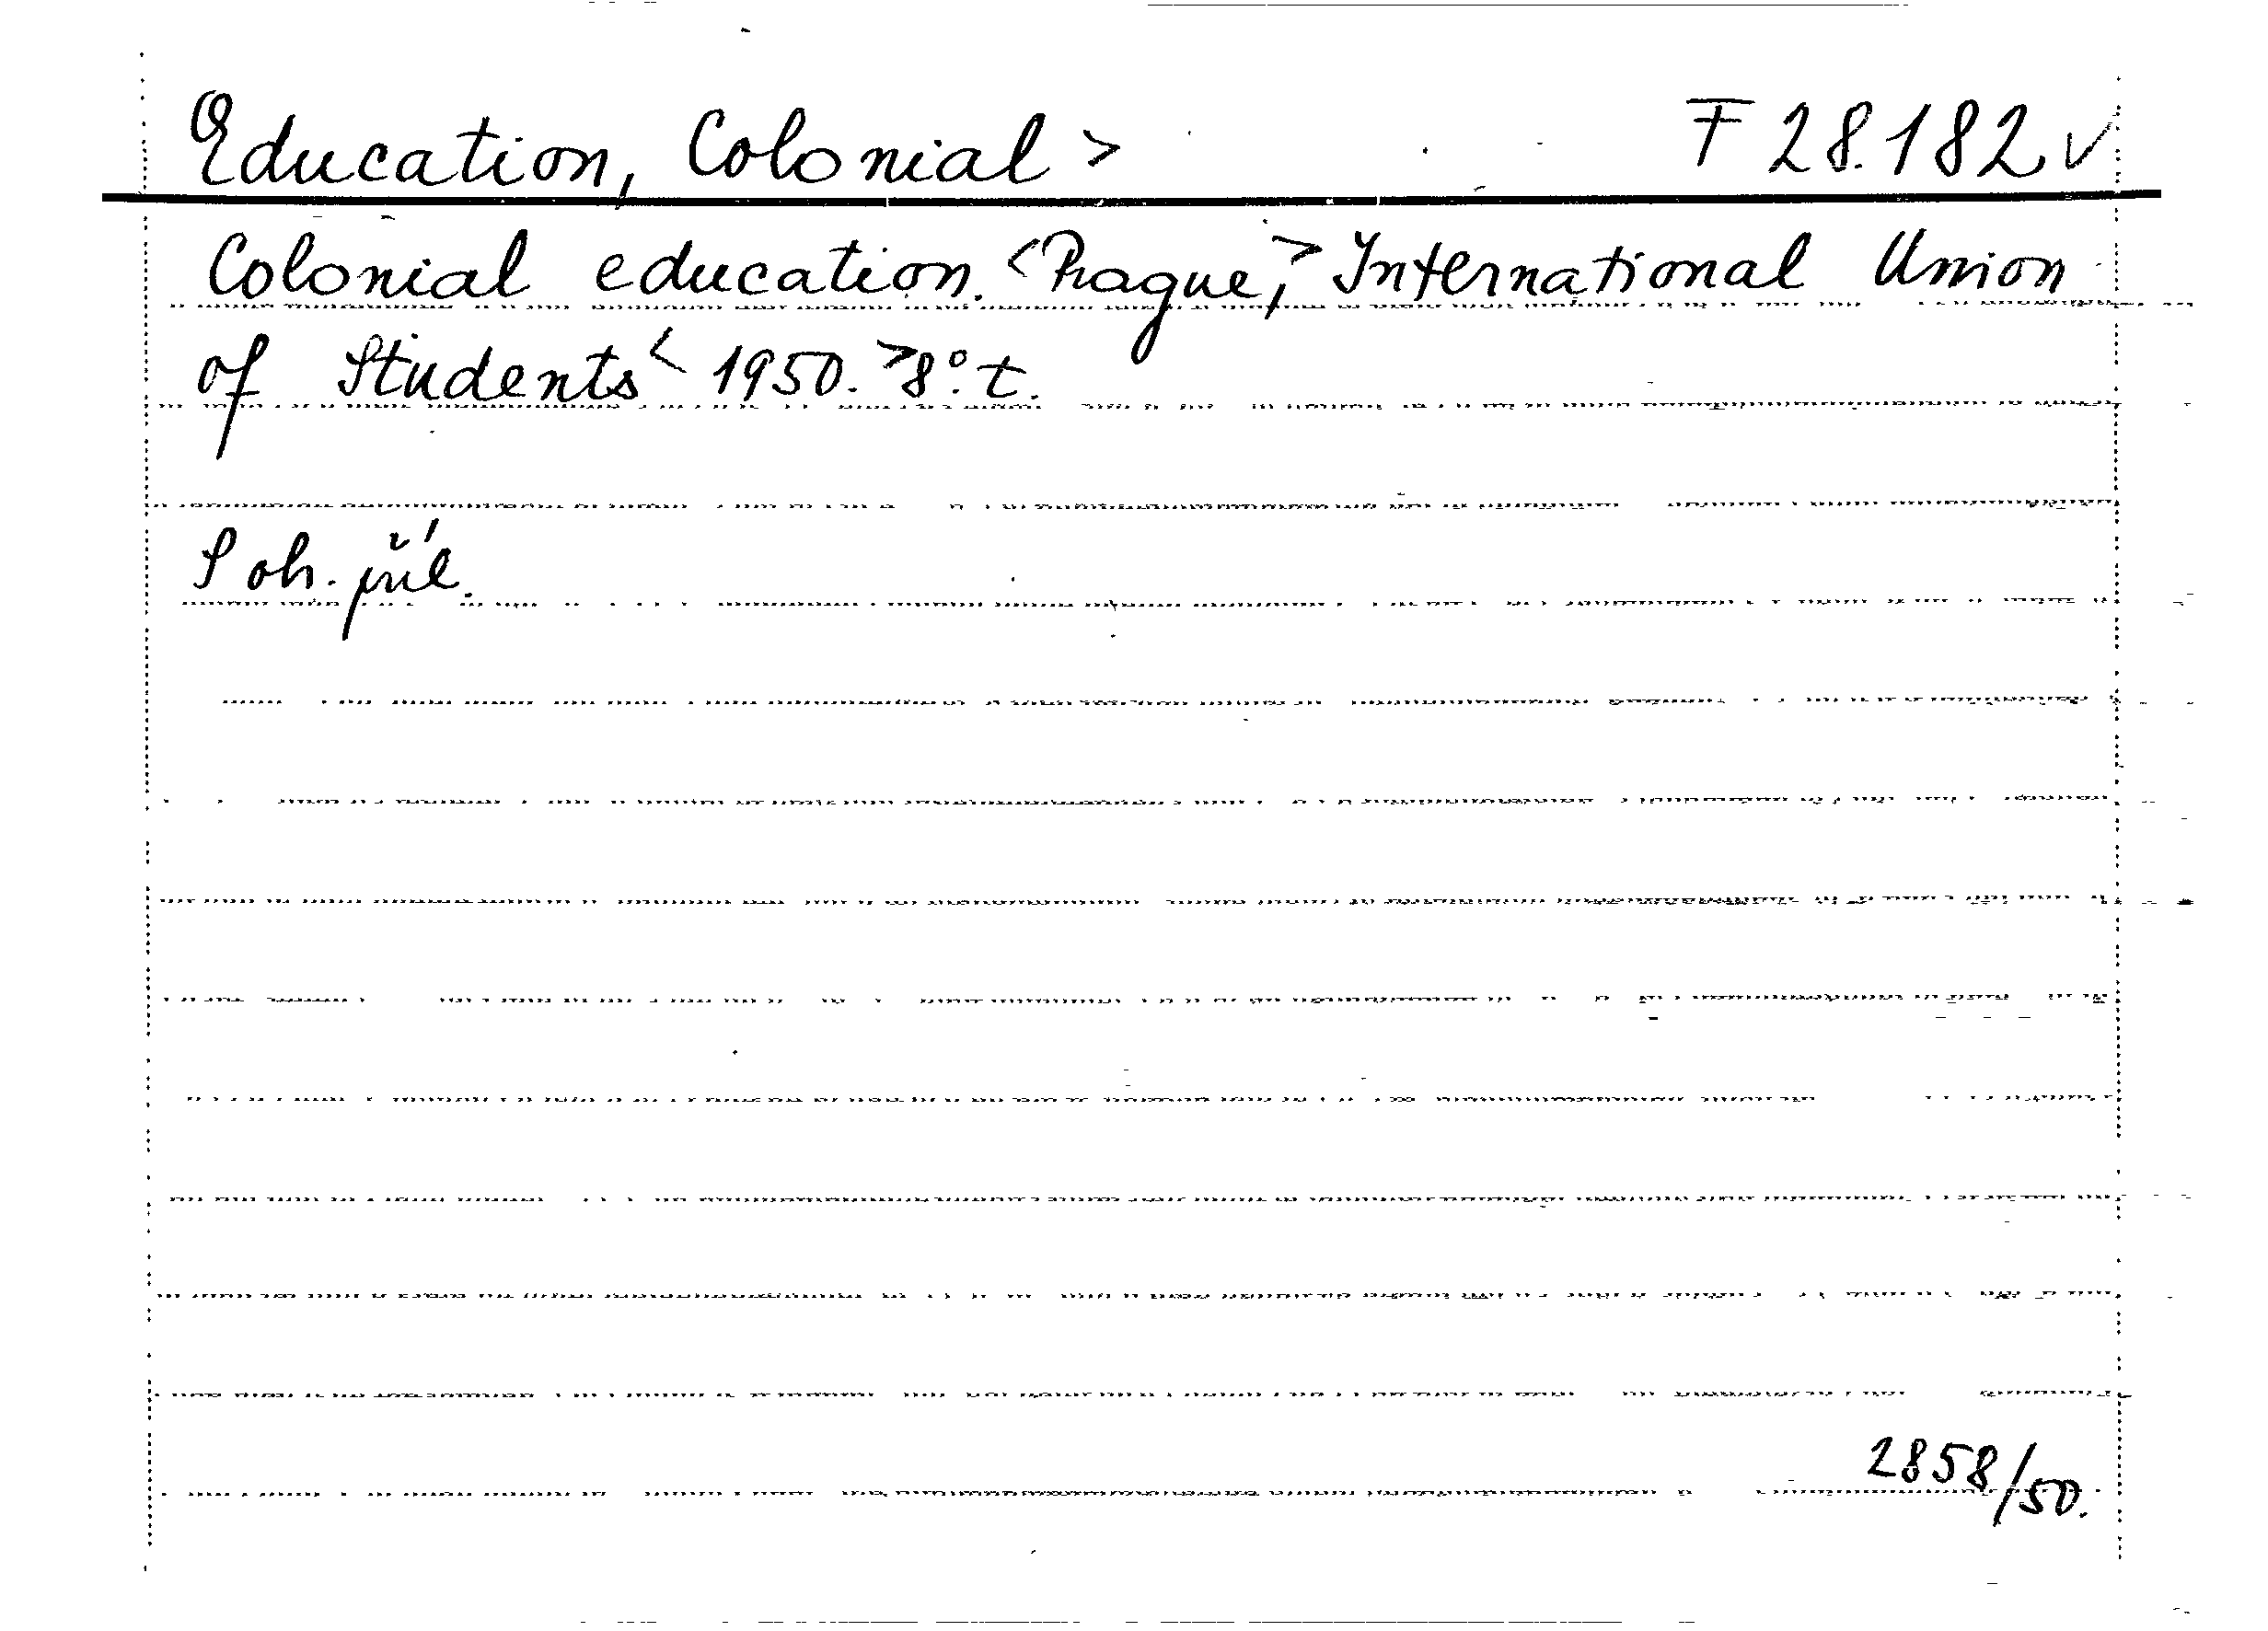 Education, Colonial > F 28.182 ✓
Colonial education. <Prague,> International Union
of Students < 1950. > 8°. t.
S ob. příl.
2858/50.